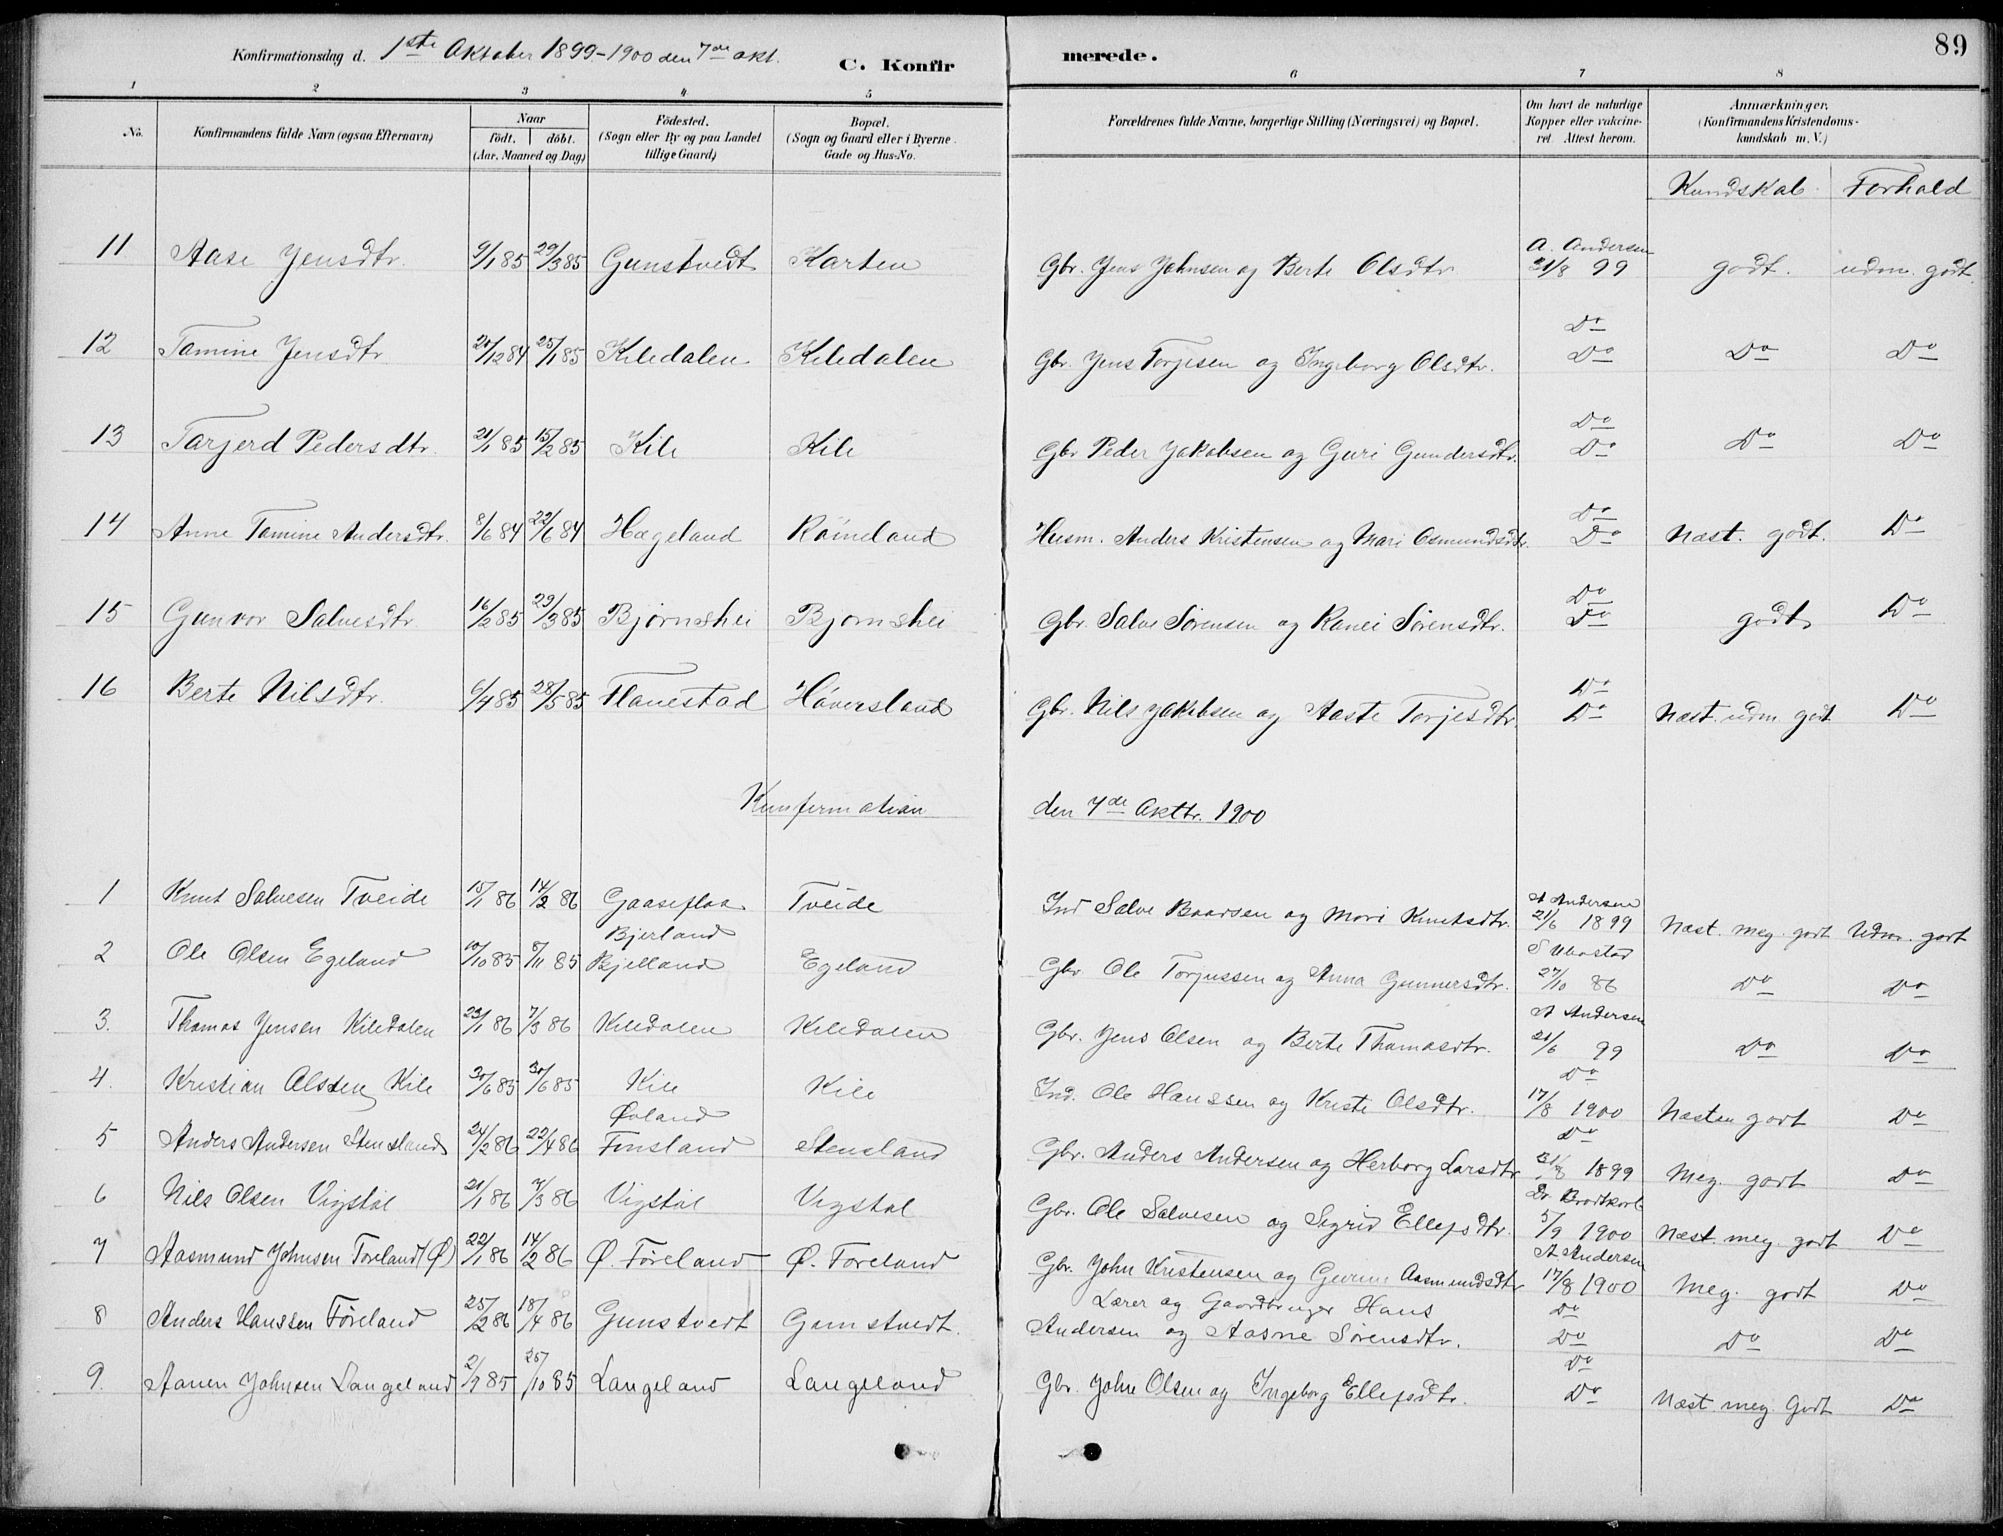 Konfirmationsdag d. 1ste Oktober 1899–1900 den 7de okt. C. Konfir merede. 89
1 2 3 4 5 6 7 8
No. Konfirmandens fulde Navn (ogsaa Efternavn) Naar født. døbt. (Aar, Maaned og Dag) Fødested. (Sogn eller By og paa Landet tillige Gaard) Bopæl. (Sogn og Gaard eller i Byerne Gade og Hus-No. Forældrenes fulde Navne, borgerlige Stilling (Næringsvei) og Bopæl. Om havt de naturlige Kopper eller vakcineret. Attest herom. Anmærkninger. (Konfirmandens Kristendomskundskab m. V.)
Kundskab. Forhold
11 Aase Jensdtr. 9/1 85 29/3 85 Gunstvedt Karten Gbr. Jens Johnsen og Berte Olsdtr. A. Andersen 31/8 99 godt. udm. godt.
12 Tamine Jensdtr 20/12 84 25/1 85 Kiledalen Kiledalen Gbr. Jens Torjesen og Ingeborg Olsdtr. Do Do Do Do
13 Tarjerd Pedersdtr. 21/1 85 15/2 85 Kile Kile Gbr Peder Jakobsen og Guri Gundersdtr. Do Do Do Do
14 Anne Tamine Andersdtr. 8/6 84 22/6 84 Hægeland Røineland Husm. Anders Kristensen og Mari Osmundsdtr. Do Do Næst. godt. Do
15 Gunvor Salvesdtr 16/2 85 29/3 85 Bjørnshei Bjornshei Gbr. Salve Sørensen og Ranei Sørensdtr. Do Do godt Do
16 Berte Nilsdtr. 6/4 85 28/5 85 Flanestad Høversland Gbr. Nils Jakobsen og Aaste Torjesdtr. Do Do Næst. udm. godt Do
Kunfirmation den 7de Oktbr. 1900
1 Knut Salvesen Tveide 15/1 86 14/2 86 Gaaseflaa Tveide Ind Salve Baardsen og Mari Knutsdtr. A Andersen 21/6 1899 Næst. meg. godt Udm. godt
2 Ole Olsen Egeland 19/10 85 8/11 85 Bjerland Bjelland Egeland Gbr Ole Torjussen og Anna Gunnersdtr. 27/10 86 Do Do
3. Thomas Jensen Kiledalen 23/1 86 7/3 86 Kiledalen Kiledalen Gbr. Jens Olsen og Berte Thomasdtr. A Andersen 21/6 99 Do Do
4. Kristian Olssen Kile 30/6 85 30/6 85 Kile Kile Ind. Ole Hanssen og Kriste Olsdtr. Do 17/8 1900 Næsten godt Do
5 Anders Andersen Stensland 24/2 86 22/4 86 Øvland Finsland Stensland Gbr. Anders Andersen og Herborg Larsdtr Do 31/8 1899 Meg. godt Do
6 Nils Olsen Vigstøl 21/1 86 7/3 86 Vigstøl Vigstøl Gbr. Ole Salvesen og Sigrid Ellefsdtr. Dr. Brodtkorb 5/9 1900 Næst. meg. godt Do
7 Aasmund Johnsen Foreland (Ø) 22/1 86 14/2 86 Ø. Føreland Ø. Foreland Gbr. John Kristensen og Gurine Aasmundsdtr A Andersen 17/8 1900 Meg. godt Do
8 Anders Hanssen Føreland 25/2 86 18/4 86 Gunstvedt Gunstvedt. Lærer og Gaardbruger Hans Andersen og Aasne Sørensdtr. Do Do Do Do
9. Aanen Johnsen Langeland 2/9 85 25/10 85 Langeland Langeland Gbr. John Olsen og Ingeborg Ellefsdtr. Do Do Næst. meg. Godt Do